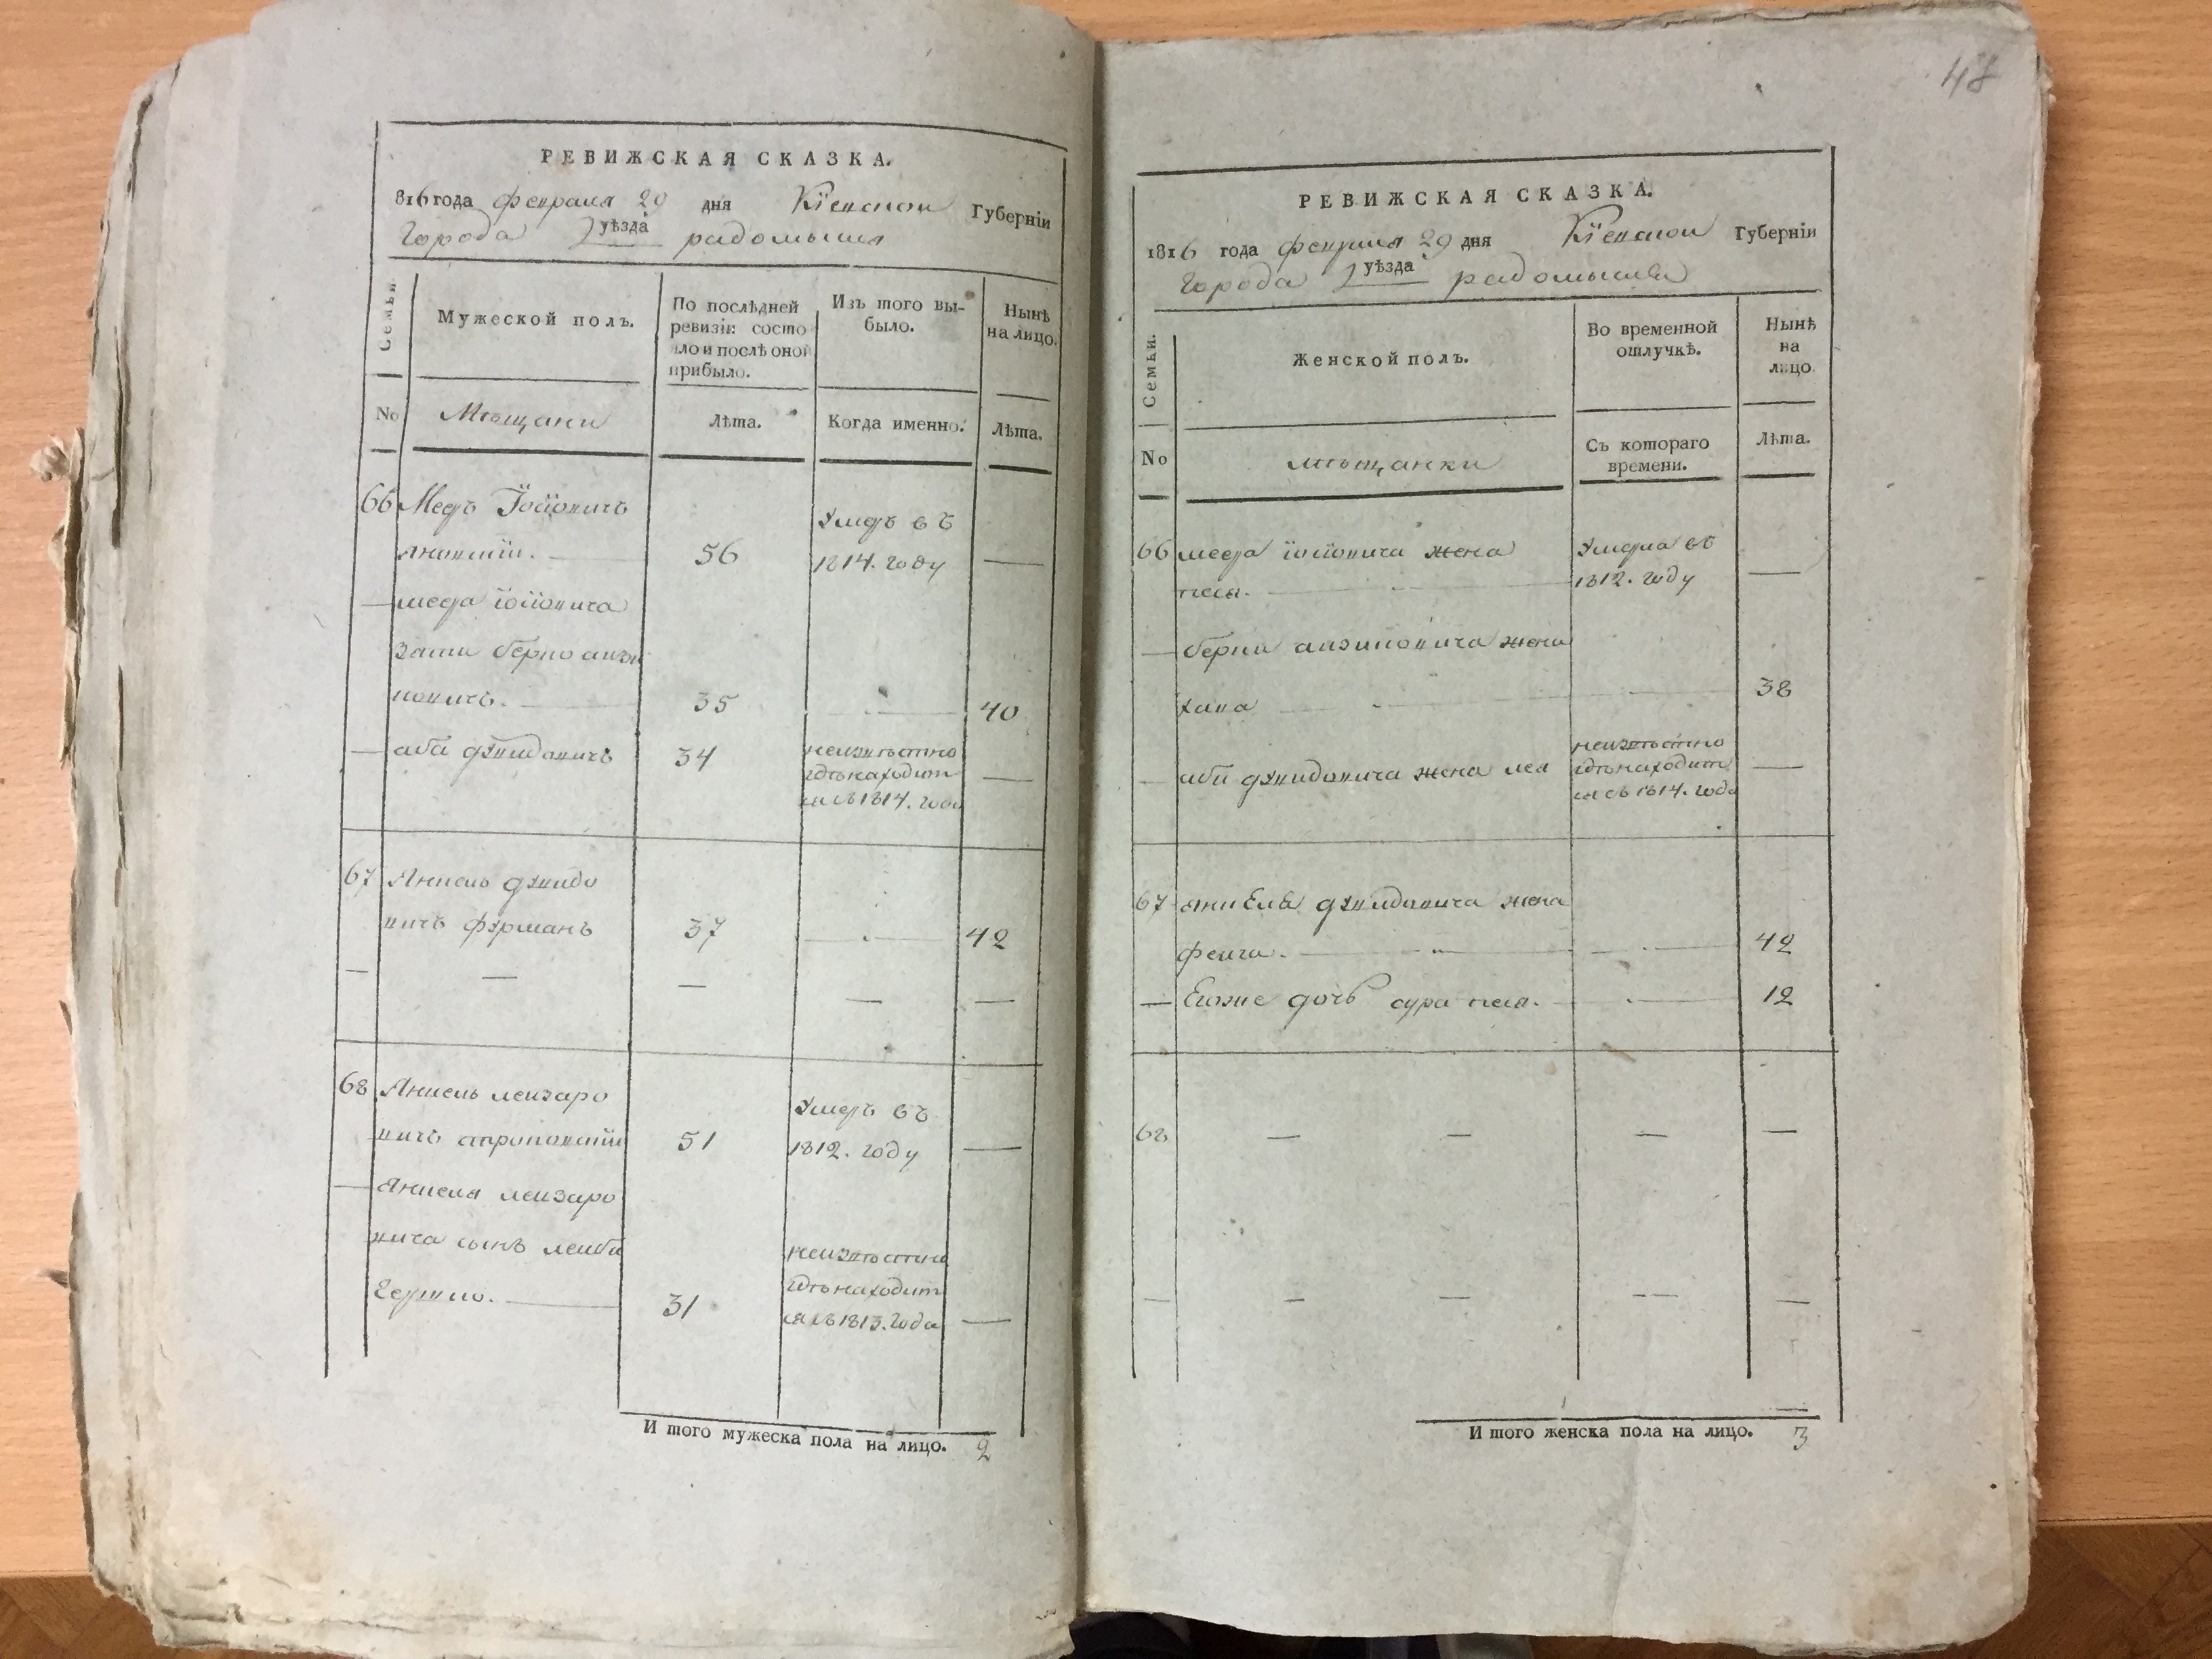 РЕВИЖСКАЯ СКАЗКА.
816 года февраля 29 дня Кіевской Губерніи
Города уѣзда радомысля
Семьи.
Мужеской полъ.
По послѣдней
ревизіи состо
яло и послѣ оной
прибыло.
Изъ того вы-
было.
Нынѣ
на лицо.
No
Мѣщани
Лѣта.
Когда именно.
Лѣта.
66 Мееръ Іосіовичъ
56
Умеръ въ
1814. году
—
— меера іосіовича
зяти берко
новичъ.
35
40
— аба дувидовичъ
34
неизвѣстно
гдѣ находит
ся съ 1814. года
—
67 Анкель дувидо
вичъ фурманъ
37
42
— — — — —
68 Анкель лейзаро
вичъ
51
Умеръ въ
1812. году
—
— Анкеля лейзаро
вича сынъ лейба
Гершко.
31
неизвѣстно
гдѣ находит
ся съ 1813. года
—
И того мужеска пола на лицо. 2
48
РЕВИЖСКАЯ СКАЗКА.
1816 года февраля 29 дня Кіевской Губерніи
Города уѣзда радомысля
Семьи.
Женской полъ.
Во временной
отлучкѣ.
Нынѣ
на
лицо.
No
мѣщанки
Съ котораго
времени.
Лѣта.
66 меера іосіовича жена
песя.
Умерла въ
1812. году
—
— берки жена
хана
38
— аби дувидовича жена лея
неизвѣстно
гдѣ находит
ся съ 1814. года
—
67 анкеля дувидовича жена
фейга.
42
— Егоже дочь сура песя.
12
68 — — — —
— — — — —
И того женска пола на лицо. 3